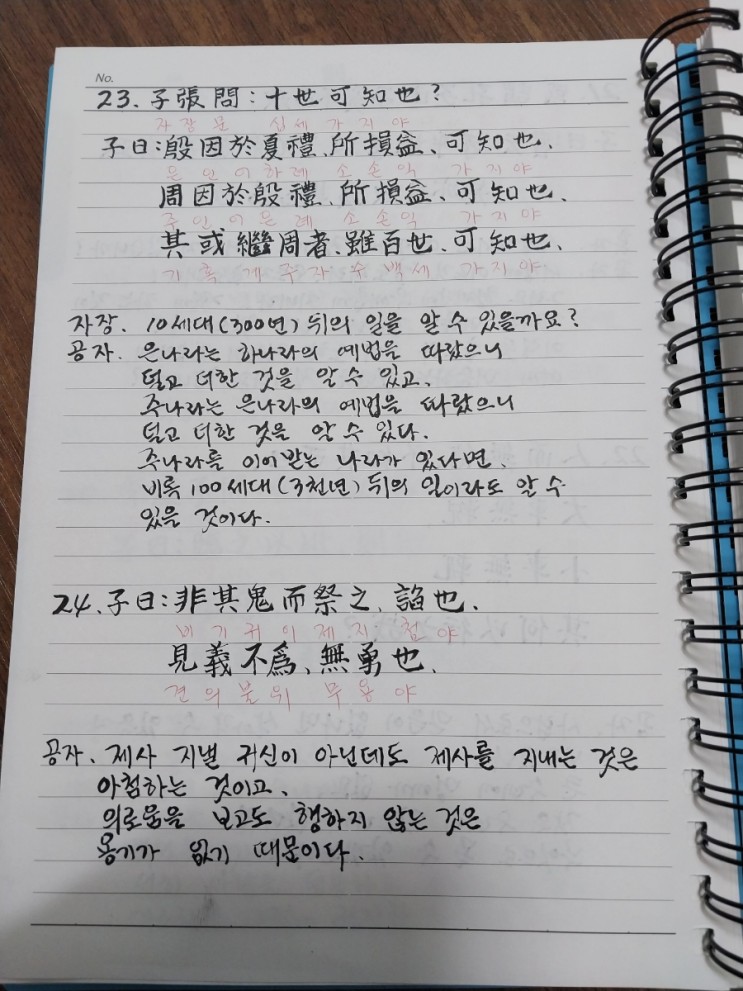 No.
23. 子張問: 十世可知也?
자장문 십세가지야
子曰: 殷因於夏禮、所損益、可知也.
은인어하례 소손익 가지야
周因於殷禮、所損益、可知也.
주인어은례 소손익 가지야
其或繼周者、雖百世、可知也.
기혹계주자 수백세 가지야
자장. 10세대(300년) 뒤의 일을 알 수 있을까요?
공자. 은나라는 하나라의 예법을 따랐으니
덜고 더한 것을 알 수 있고.
주나라는 은나라의 예법을 따랐으니
덜고 더한 것을 알 수 있다.
주나라를 이어받는 나라가 있다면.
비록 100세대(3천년) 뒤의 일이라도 알 수
있을 것이다.
24. 子曰: 非其鬼而祭之、諂也.
비기귀이제지 첨야
見義不爲、無勇也.
견의불위 무용야
공자. 제사 지낼 귀신이 아닌데도 제사를 지내는 것은
아첨하는 것이고.
의로움을 보고도 행하지 않는 것은
용기가 없기 때문이다.